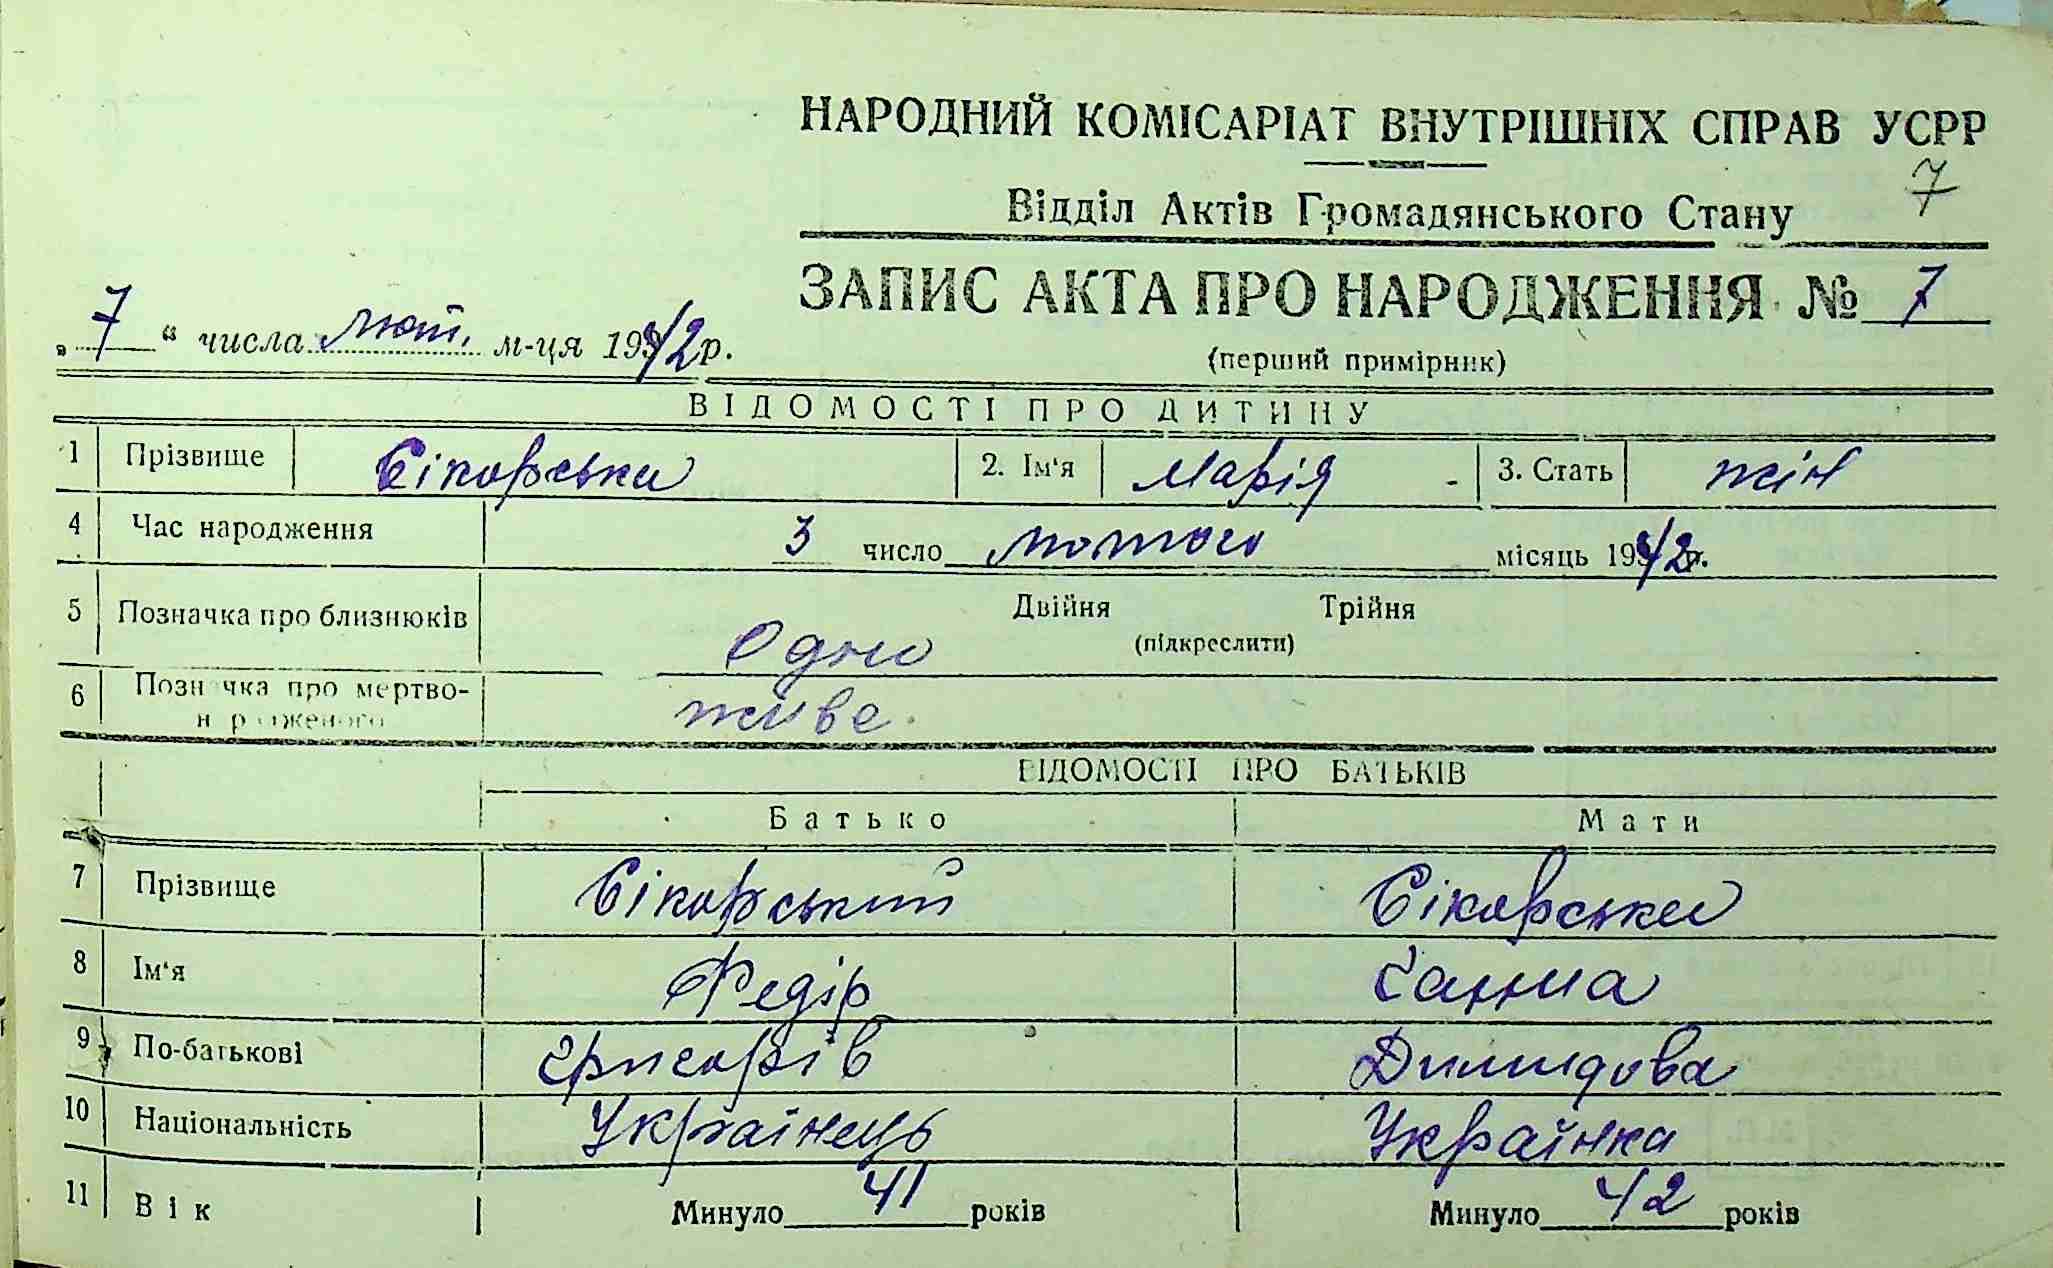 НАРОДНИЙ КОМІСАРІАТ ВНУТРІШНІХ СПРАВ УСРР
7
Відділ Актів Громадянського Стану
ЗАПИС АКТА ПРО НАРОДЖЕННЯ № 7
„ 7 “ числа лют. м-ця 1942 р.
(перший примірник)
ВІДОМОСТІ ПРО ДИТИНУ
1 Прізвище Сікорська 2. Ім'я Марія 3. Стать жін
4 Час народження 3 число лютого місяць 1942 р.
5 Позначка про близнюків Двійня Трійня
Одно (підкреслити)
6 Позначка про мертво-
народженого живе.
ВІДОМОСТІ ПРО БАТЬКІВ
Батько Мати
7 Прізвище Сікорський Сікорська
8 Ім'я Федір Ганна
9 По-батькові Григорів
10 Національність Українець Українка
11 Вік Минуло 41 років Минуло 42 років